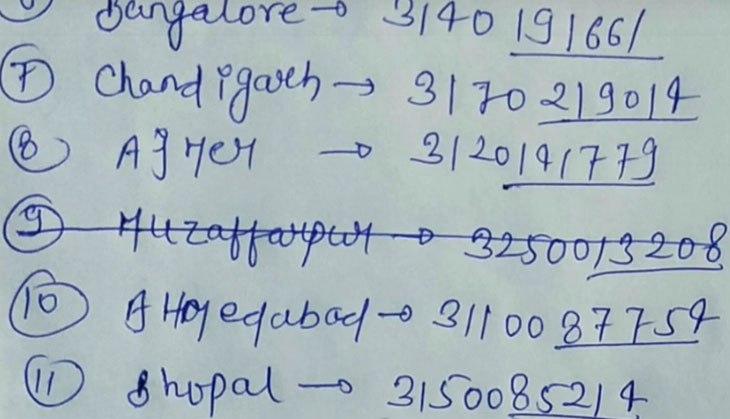 Bangalore → 3140191661
⑦ Chandigarh → 3170219014
⑧ Ajmer → 3120141779
⑨ Muzaffarpur → 3250013208
⑩ Ahmedabad → 3110087754
⑪ Bhopal → 3150085214